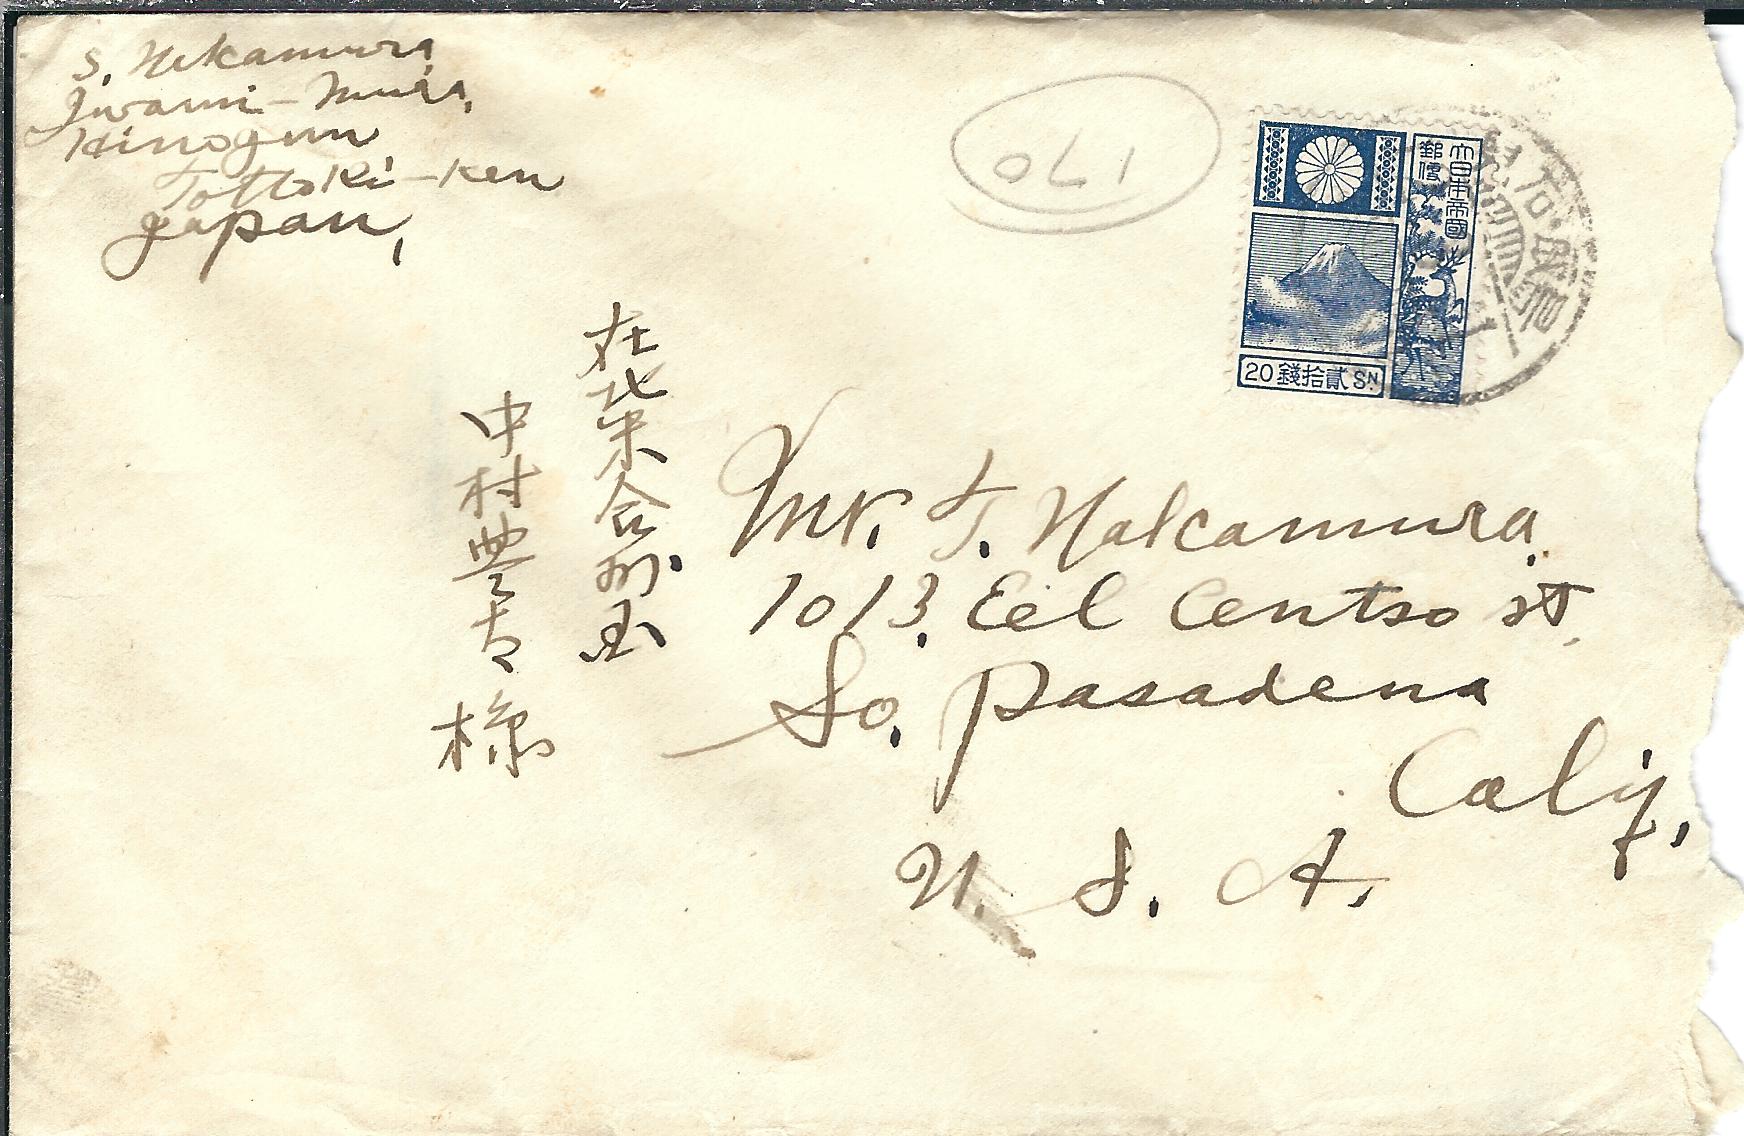 S. Nakamura,
Iwami-Mura,
Hinogun
Tottori-Ken
Japan,
170
大日本帝國
郵便
20 錢拾貳 SN
在北米合州国
中村豊吉様
Mr. T. Nakamura.
1013. Eel Centso st,
So. Pasadena
Calif,
U. S. A.